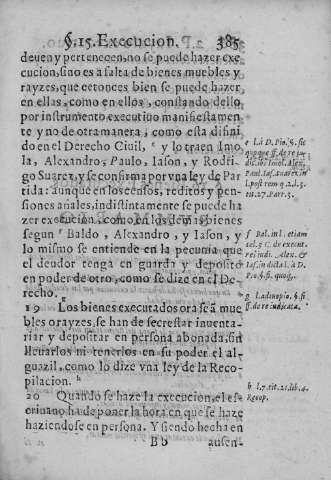 §. 15. Execucion. 385
deuen y pertenecen, no se puede hazer exe
cucion, sino es a falta de bienes muebles y
rayzes, que entonces bien se puede hazer,
en ellas, como en ellos, constando dello,
por instrumento executiuo manifiestamen
te y no de otra manera, como esta difini
do en el Derecho Ciuil, e y lo traen Imo
la, Alexandro, Paulo, Iason, y Rodri
go Suarez, y se confirma por vna ley de Par
tida: aunque en los censos, reditos, y pen-
siones añales, indistintamente se puede ha
zer execucion, como en los demas bienes
segun f Baldo, Alexandro, y Iason, y
lo mismo se entiende en la pecunia que
el deudor tenga en guarda y deposito
en poder de otro, como se dize en el De
recho. g
19 Los bienes executados ora seã mue
bles o rayzes, se han de secrestar inuenta-
riar y depositar en persona abonada, sin
lleuarlos ni tenerlos en su poder el al-
guazil, como lo dize vna ley de la Reco
pilacion. h
20 Quando se haze la execucion, el es-
criuano ha de poner la hora en que se haze
haziendose en persona. Y siendo hecha en
Bb ausen-
e l. à D. Pio, §. sic
quoque ff. de re iu
dic. ibi Imol. Alex.
Paul. Ias. Suarez in
l. post rem q. 2. l. 3.
tit. 27. Part. 3.
f Bal. in l. etiam
cel. §. C. de execut.
rei iudi. Alex. &
Ias. in dict. l. à D.
Pio §. si. quoq.
ff. de re iudicata.
h l. 7. tit. 21. lib. 4.
Recop.